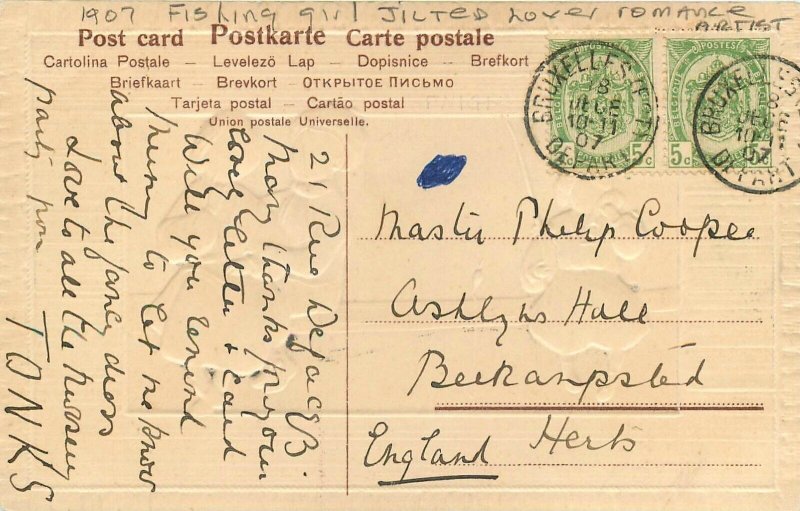 1907 Fishing girl JILTED Lover romance
ARTIST
Post card Postkarte Carte postale
Cartolina Postale – Levelező Lap – Dopisnice – Brefkort
Briefkaart – Brevkort – ОТКРЫТОЕ ПИСЬМО
Tarjeta postal – Cartão postal
Union postale Universelle.
BRUXELLES
8
DECE
10-11
07
DEPART
5c
POSTES
5c
BRUXELLES
8
10-11
07
DEPART
21 Rue Defacqz B.
Many thanks for your
love letter & card
Will you remind
Nursey to let me know
about the fancy dress
Love to all the nursery
party from
TONKS
Master Philip Cooper
Ashlyns Hall
Berkampsted
Herts
England